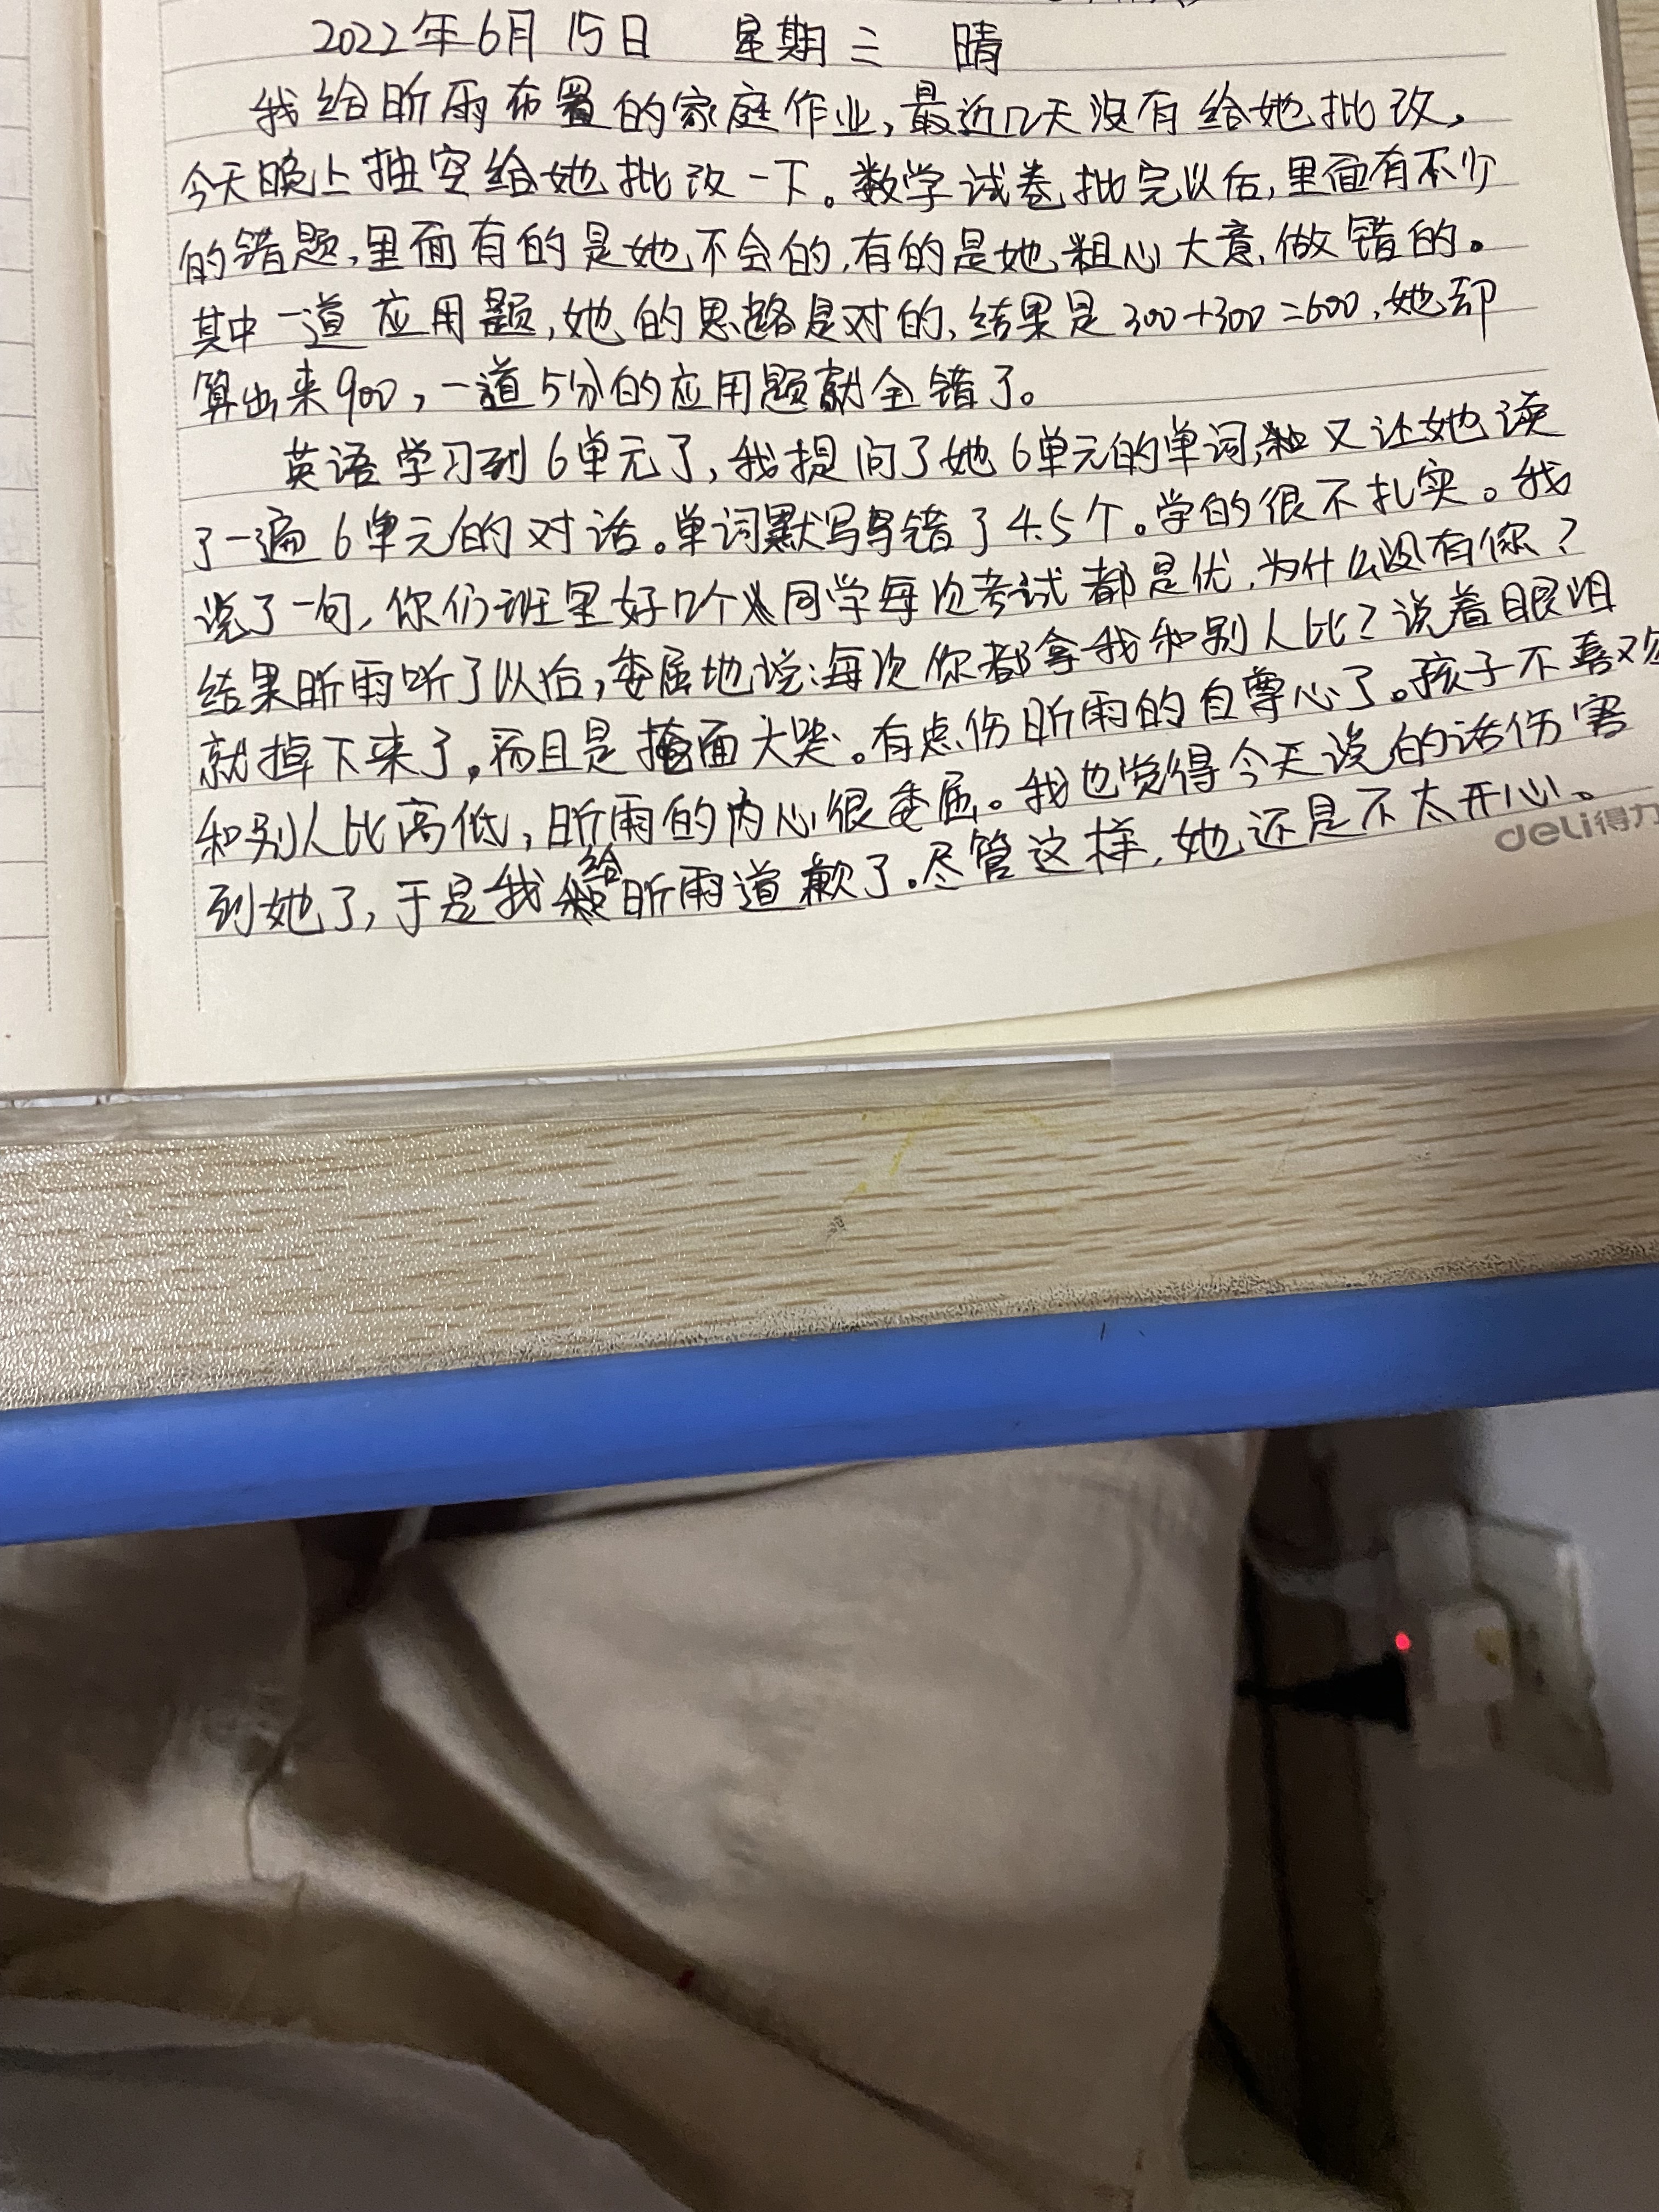 2022年6月15日 星期三 晴
我给昕雨布置的家庭作业,最近几天没有给她批改,
今天晚上抽空给她批改一下。数学试卷批完以后,里面有不少
的错题,里面有的是她不会的,有的是她粗心大意,做错的。
其中一道应用题,她的思路是对的,结果是300+300=600,她却
算出来900,一道5分的应用题就全错了。
英语学习到6单元了,我提问了她6单元的单词,又让她读
了一遍6单元的对话。单词默写写错了4.5个。学的很不扎实。我
说了一句,你们班里好几个同学每次考试都是优,为什么没有你?
结果昕雨听了以后,委屈地说:每次你都拿我和别人比?说着眼泪
就掉下来了,而且是掩面大哭。有点伤昕雨的自尊心了。孩子不喜欢
和别人比高低,昕雨的内心很委屈。我也觉得今天说的话伤害
到她了,于是我给昕雨道歉了。尽管这样,她还是不太开心。
deli得力